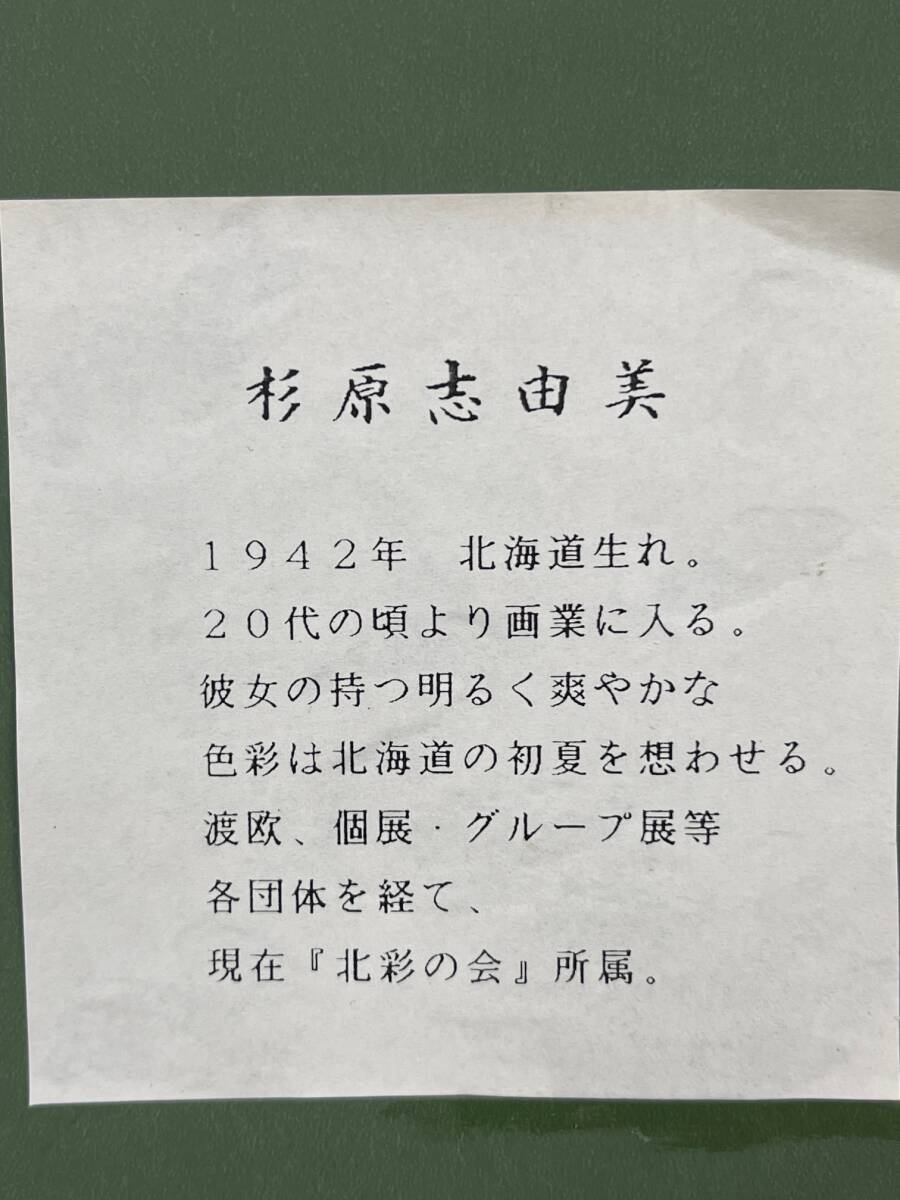 杉原志由美
１９４２年　北海道生れ。
２０代の頃より画業に入る。
彼女の持つ明るく爽やかな
色彩は北海道の初夏を想わせる。
渡欧、個展・グループ展等
各団体を経て、
現在『北彩の会』所属。